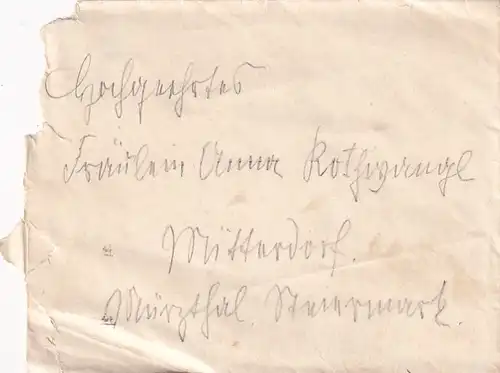 Hochgeehrtes
Fräulein Anna Rothwangl
Mitterdorf.
Mürzthal. Steiermark.